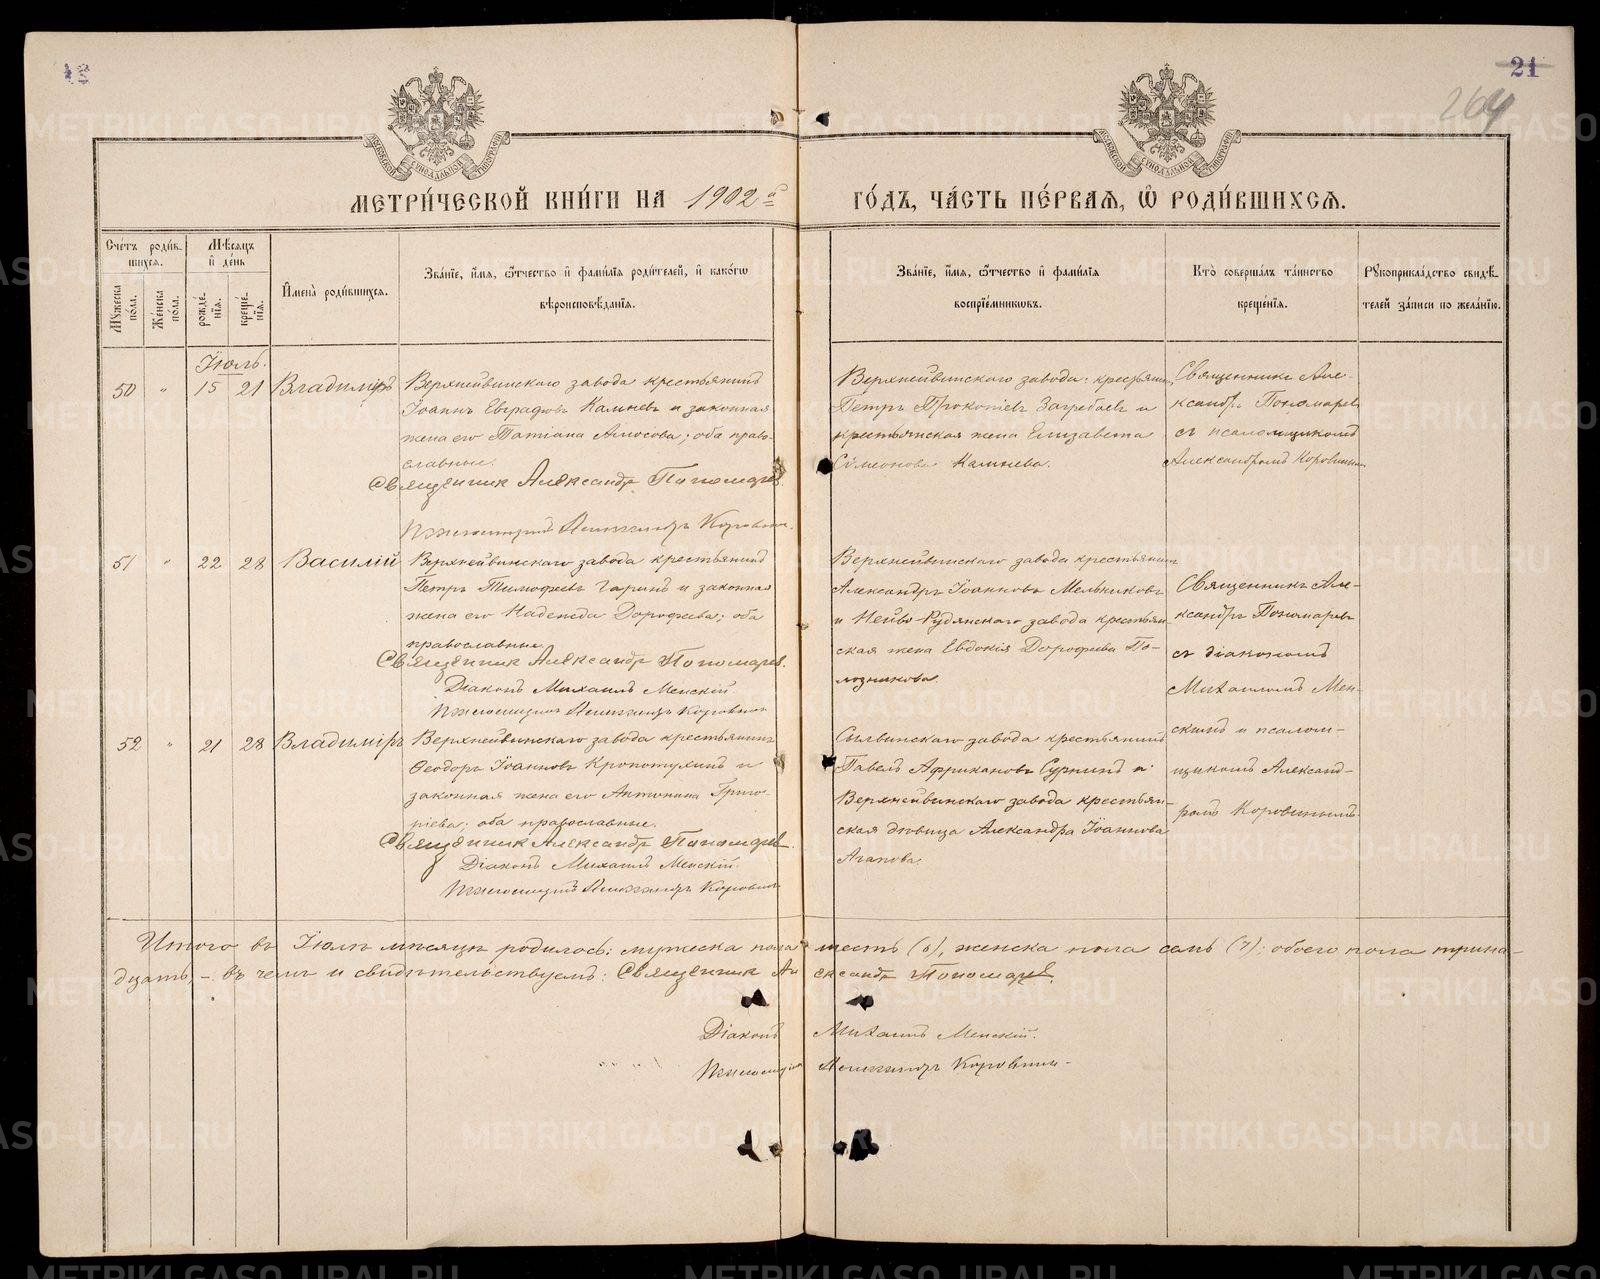 21
264
МЕТРИ́ЧЕСКОЙ КНИ́ГИ НА 1902 й ГО́ДЪ, ЧА́СТЬ ПЕ́РВАЯ, Ѡ҆ РОДИ́ВШИХСЯ.
Сче́тъ роди́в-
шихся.
Мꙋ́жеска по́ла.
Же́нска по́ла.
Мѣ́сяцъ и҆ де́нь
рожде́-
нїя.
креще́-
нїя.
И҆мена̀ роди́вшихся.
Зва́нїе, и҆́мя, ѻ҆́тчество и҆ фами́лїя роди́телей, и҆ како́гѡ
вѣроисповѣ́данїя.
Зва́нїе, и҆́мя, ѻ҆́тчество и҆ фами́лїя
воспрїе́мниковъ.
Кто̀ соверша́лъ та́инство
креще́нїя.
Рꙋкоприкла́дство свидѣ́-
телей за́писи по жела́нїю.
Іюль.
50 " 15 21 Владиміръ
Верхнейвинскаго завода крестьянинъ
Іоаннъ Евграфовъ Калневъ и законная
жена его Татіана Амосова; оба право-
славные.
Священник Александр Пономарев.
Псаломщикъ Александръ Коровинъ.
Верхнейвинскаго завода: крестьянинъ
Петръ Прокопіевъ Загребаевъ и
крестьянская жена Елизавета
Симеонова Калнева.
Священникъ Але-
ксандръ Пономаревъ
съ псаломщикомъ
Александромъ Коровинымъ
51 " 22 28 Василій
Верхнейвинскаго завода крестьянинъ
Петръ Тимофеевъ Гаринъ и законная
жена его Надежда Дорофеева; оба
православные.
Священник Александр Пономарев.
Діаконъ Михаилъ Менскій.
Псаломщикъ Александръ Коровинъ
Верхнейвинскаго завода крестьянинъ
Александръ Іоанновъ Мельниковъ
и Нейво-Рудянскаго завода крестьян-
ская жена Евдокія Дорофеева По-
лозникова.
Священникъ Але-
ксандръ Пономаревъ
съ діакономъ
Михаиломъ Мен-
скимъ и псалом-
щикомъ Александ-
ромъ Коровинымъ.
52 " 21 28 Владиміръ
Верхнейвинскаго завода крестьянинъ
Ѳеодоръ Іоанновъ Кропотухинъ и
законная жена его Антонина Григо-
ріева; оба православные.
Священник Александр Пономарев.
Діаконъ Михаилъ Менскій.
Псаломщикъ Александръ Коровинъ
Сылвинскаго завода крестьянинъ
Павелъ Африкановъ Суркинъ и
Верхнейвинскаго завода крестьян-
ская дѣвица Александра Іоаннова
Агапова.
Итого въ Іюлѣ мѣсяцѣ родилось: мужеска пола шесть (6), женска пола семь (7); обоего пола трина-
дцать, - въ чемъ и свидѣтельствуемъ: Священник Александр Пономарев.
Діаконъ Михаилъ Менскій.
Псаломщикъ Александръ Коровинъ.
METRIKI.GASO-URAL.RU